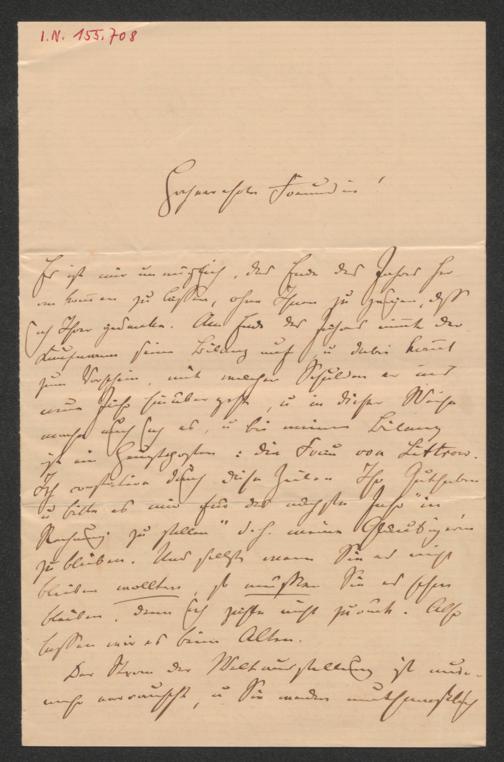 I.N. 155.708
Hochverehrte Freundin!
Es ist mir unmöglich, das Ende des Jahres her
an kommen zu lassen, ohne Ihnen zu zeigen, dass
ich Ihrer gedenke. Am Ende des Jahres nimmt der
Kaufmann seine Bilanz auf, u dabei kommt
zum Vorschein, mit welchen Schulden er ins
neue Jahr hinüber geht, u in dieser Weise
mache auch ich es, u bei meiner Bilanz
ist ein Hauptposten: die Frau von Littrow.
Ich constatire durch diese Zeilen Ihr Guthaben
u bitte es mir für das nächste Jahr "in
Rechnung zu stellen" d.h. meine Gläubigerin
zu bleiben. Und selbst wenn Sie es nicht
bleiben wollten, so müssten Sie es schon
bleiben, denn ich zahle nicht zurück. Also
lassen wir es beim Alten.
Der Strom der Weltausstellung ist nun-
mehr verrauscht, u Sie werden muthmasslich